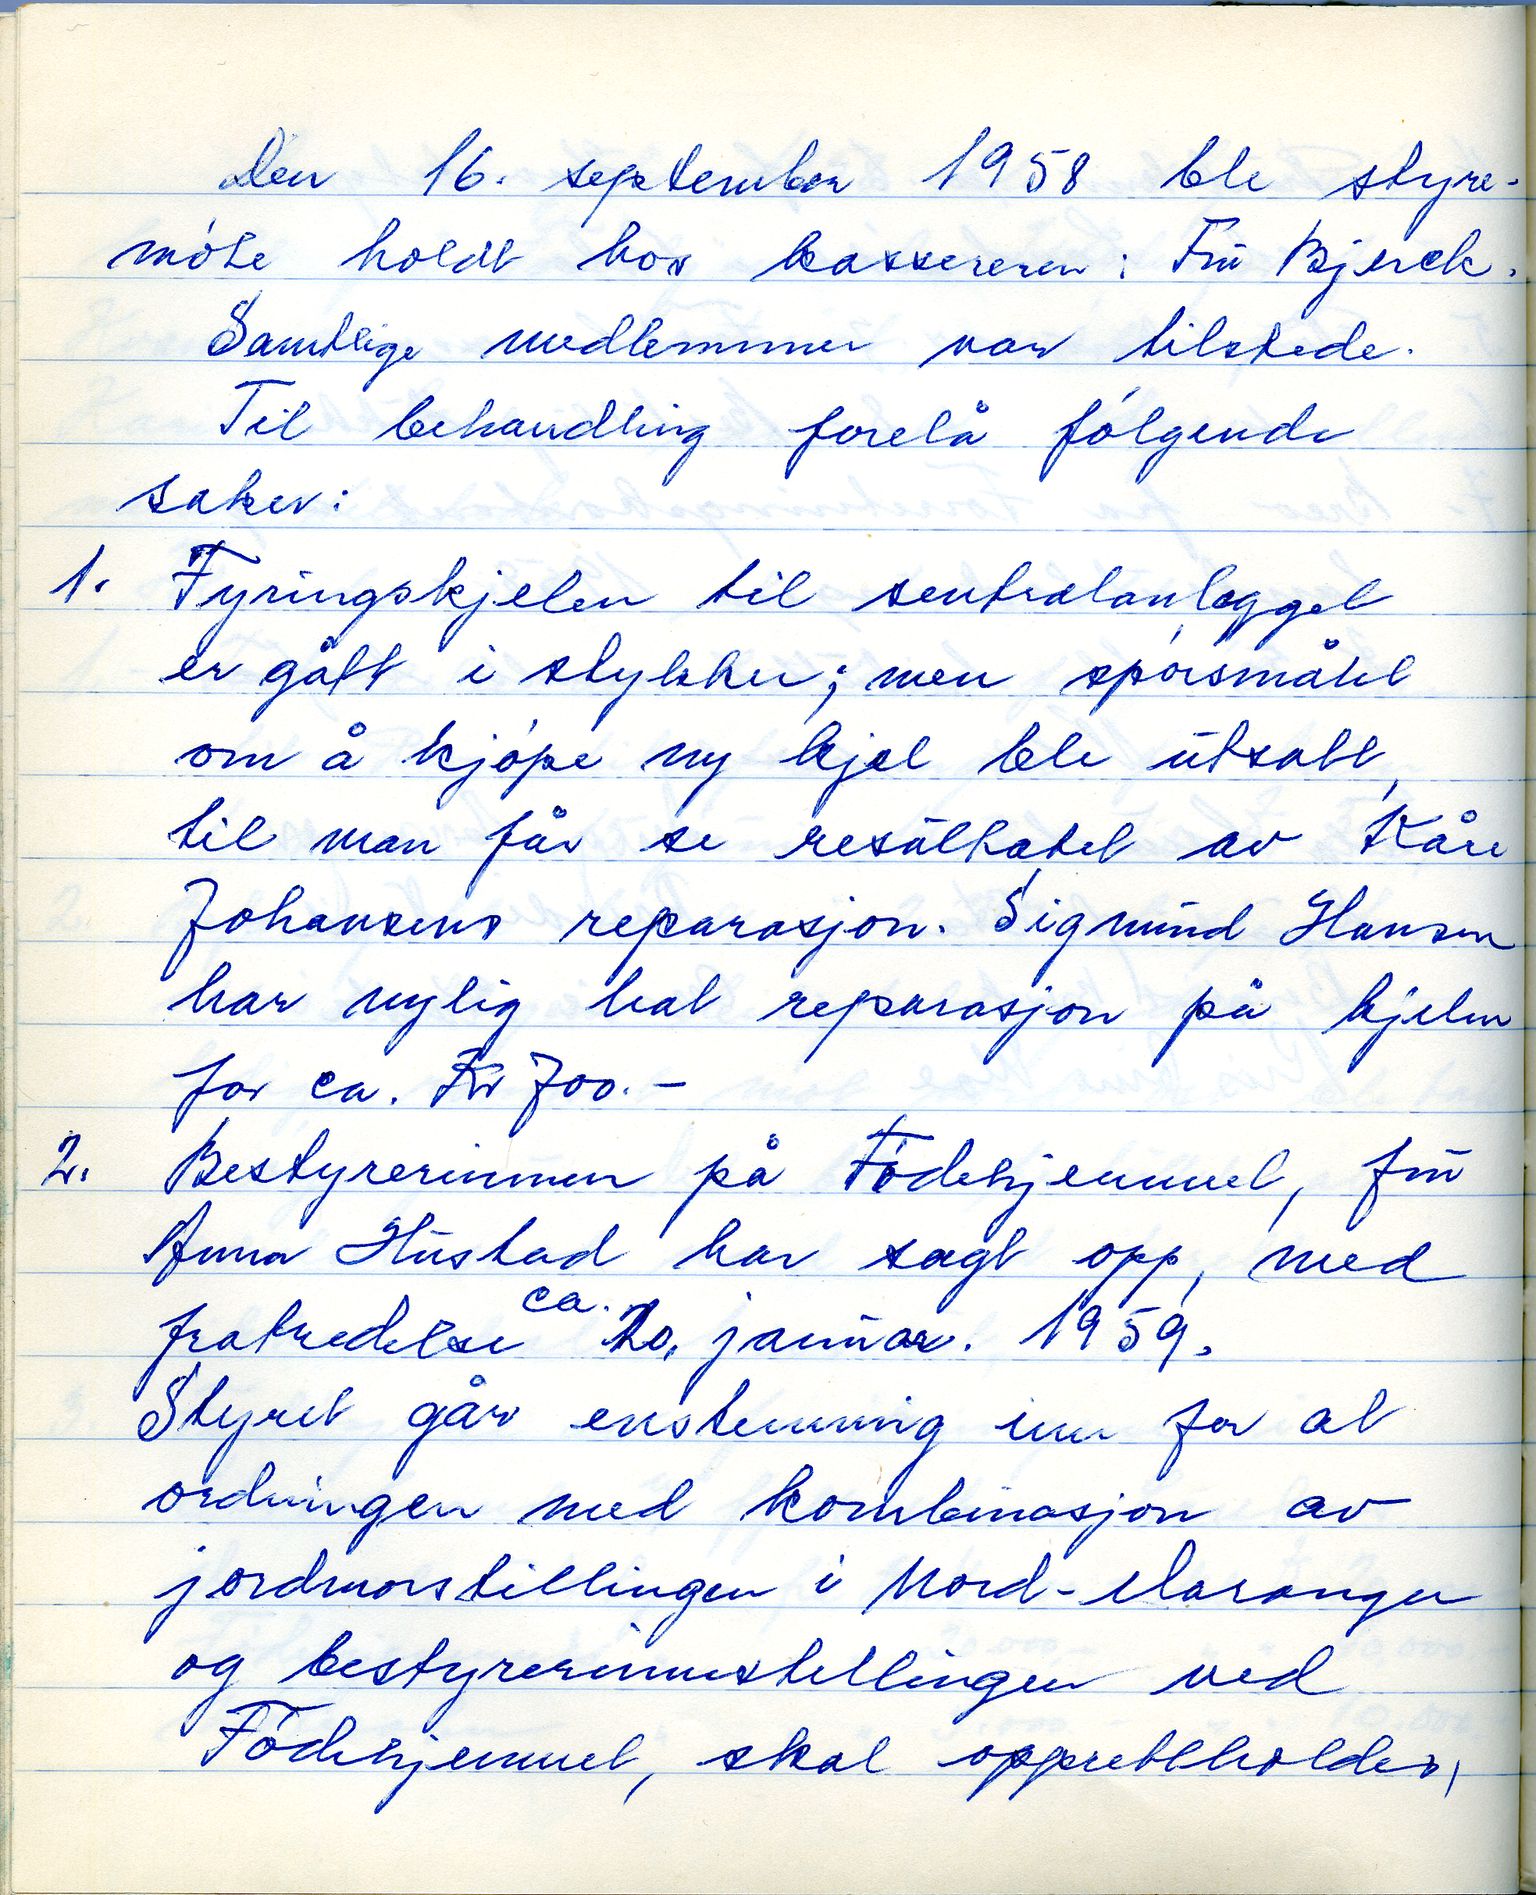 Den 16. september 1958 ble styre-
møte holdt hos kassereren: Fru Bjerck.
Samtlige medlemmer var tilstede.
Til behandling forelå følgende
saker:
1. Fyringskjelen til sentralanlegget
er gått i stykker; men spørsmålet
om å kjøpe ny kjel ble utsatt,
til man får se resultatet av Kåre
Johansens reparasjon. Sigmund Hansen
har nylig hat reparasjon på kjelen
for ca. Kr 700.-
2. Bestyrerinnen på Fødehjemmet, fru
Anna Hustad har sagt opp, med
fratredelse ca. 20. januar. 1959.
Styret går enstemmig inn for at
ordningen med kombinasjon av
jordmorstillingen i Nord-Varanger
og bestyrerinnestillingen ved
Fødehjemmet, skal opprettholdes,